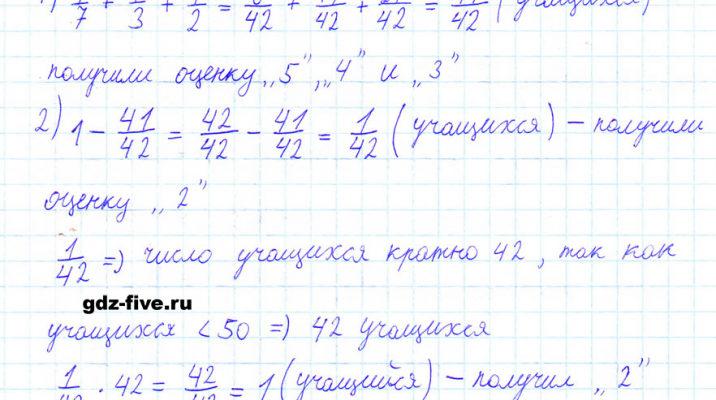 1/7 + 1/3 + 1/2 = 6/42 + 14/42 + 21/42 = 41/42 (учащихся)
получили оценку „5”, „4” и „3”
2) 1 - 41/42 = 42/42 - 41/42 = 1/42 (учащихся) - получили
оценку „2”
1/42 => число учащихся кратно 42, так как
gdz-five.ru
учащихся < 50 => 42 учащихся
1/42 · 42 = 42/42 = 1 (учащийся) - получил „2”